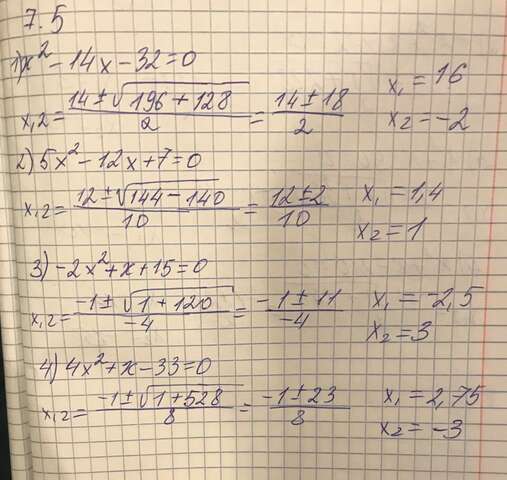 7.5
1) x² - 14x - 32 = 0
x1,2 = (14 ± √(196 + 128))/2 = (14 ± 18)/2 x1 = 16
x2 = -2
2) 5x² - 12x + 7 = 0
x1,2 = (12 ± √(144 - 140))/10 = (12 ± 2)/10 x1 = 1,4
x2 = 1
3) -2x² + x + 15 = 0
x1,2 = (-1 ± √(1 + 120))/-4 = (-1 ± 11)/-4 x1 = -2,5
x2 = 3
4) 4x² + x - 33 = 0
x1,2 = (-1 ± √(1 + 528))/8 = (-1 ± 23)/8 x1 = 2,75
x2 = -3